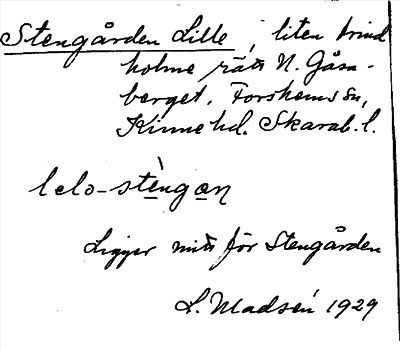 Stengården Lille, liten trind
holme rätt N. Gåsa-
berget. Forshems sn,
Kinne hd. Skarab. l.
lelo-stèngan
Ligger mitt för Stengården
L. Madsén 1929